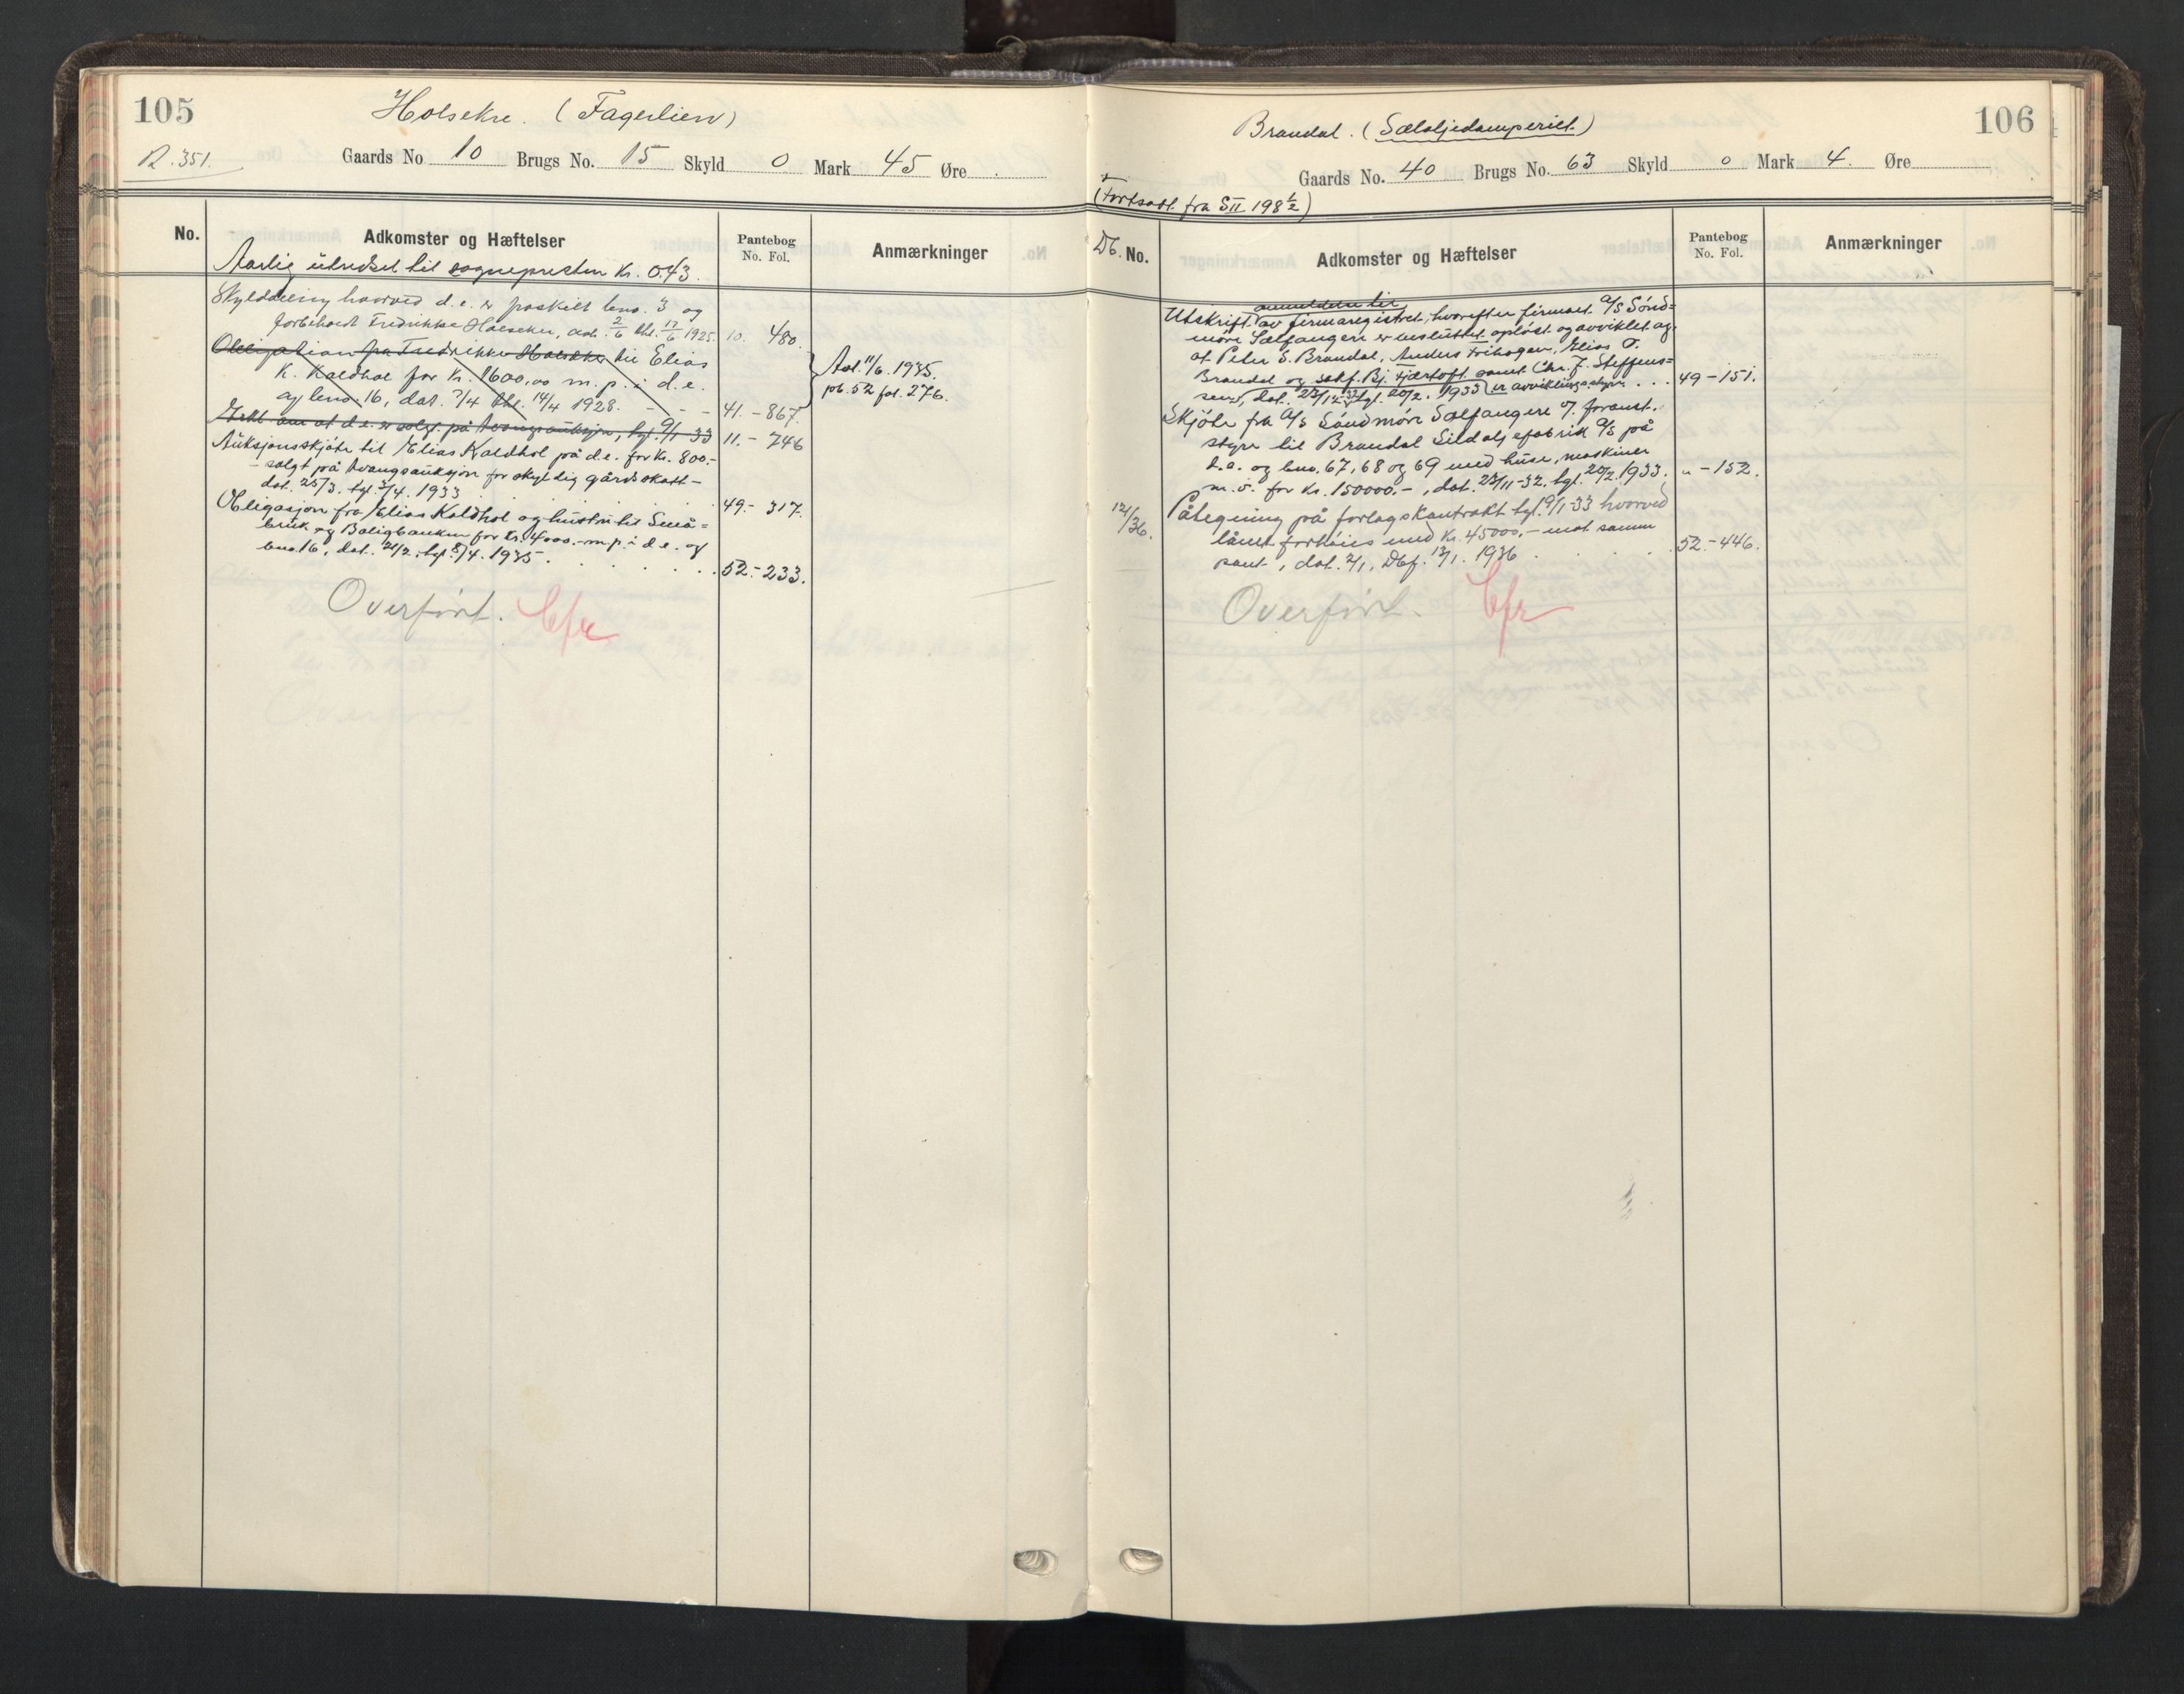 105
Holsekre. (Fagerlien)
R. 351.
Gaards No 10 Brugs No. 15 Skyld 0 Mark 45 Øre
No.
Adkomster og Hæftelser
Pantebog
No. Fol.
Anmærkninger
Aarlig utredsel til sognepresten Kr. 0.43.
Skylddeling hvorved d.e. er fraskilt bno. 3 og
forbeholdt Fredrikke Holseker, dat. 2/6 thl. 17/6 1925. 10. 480.
Obligation fra Fredrikke Holseker til Elias
K. Kaldhol for Kr. 1600,00 m.p. i d.e.
og bno. 16, dat. 7/4 thl. 14/4 1928. - - - 41. - 867.
Avl. 11/6. 1935.
pb. 52 fol. 276.
om at d.e. er solgt på tvangsauksjon, tgl. 9/1-33 11. - 746
Auksjonsskjøte til Elias Kaldhol på d.e. for Kr. 800.-
- solgt på tvangsauksjon for skyldig gårdsskatt -
dat. 25/3. tgl. 3/4. 1933 . . . . . 49. - 317.
Obligasjon fra Elias Kaldhol og hustru til Små=
bruk og Boligbanken for Kr. 4000.- m.p. i d.e. og
bno. 16, dat. 21/2, tgl. 8/4. 1935 . . . . . . 52. - 233.
Overført. Cfr
106
Brandal. (Sæloljedamperiet.)
Gaards No. 40 Brugs No. 63 Skyld 0 Mark 4. Øre
(Fortsatt fra SII 198 1/2)
Db. No.
Adkomster og Hæftelser
Pantebog
No. Fol.
Anmærkninger
anmeldelse til
Utskrift av firmaregistret, hvorefter firmaet A/S Sönd=
möre Sælfangeri er besluttet opløst og avviklet og
at Peter S. Brandal, Anders Frihagen, Elias O.
Brandal og sakf. Bj. Fjærtoft samt Chr. J. Steffens=
sen, dat. 23/12-32, tgl. 20/2. 1933 er avviklingsstyre . . . 49 - 151.
Skjöte fra A/S Söndmöre Sælfangeri v. foranst.
styre til Brandal Sildoljefabrik A/S på
d.e. og bno. 67, 68 og 69 med huse, maskiner
m.v. for Kr. 150000.-, dat. 23/11-32. tgl. 20/2. 1933. " - 152.
121/36. Påtegning på forlagskontrakt tgl. 19/1-33 hvorved
lånet forhöies med Kr. 45000.- mot samme
pant, dat. 2/1, Dbf. 13/1. 1936 . . . . 52. - 446.
Overført. Cfr